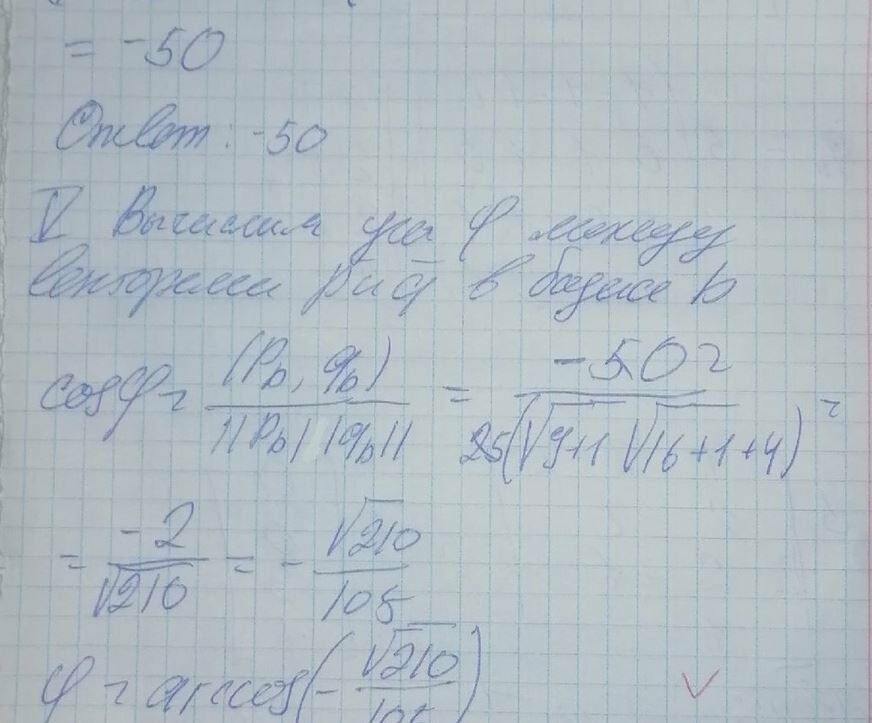 = -50
Ответ: -50
V Вычислим угол φ между
векторами p и q в базисе b
cosφ = (P_b, q_b) / ||P_b| |q_b|| = -50 / 25(√9+1 √16+1+4) =
= -2/√210 = - √210/105
φ = arccos(- √210/105)